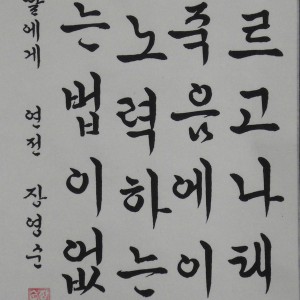 르고나태
죽음에이
노력하는
는법이없
연전 장영순